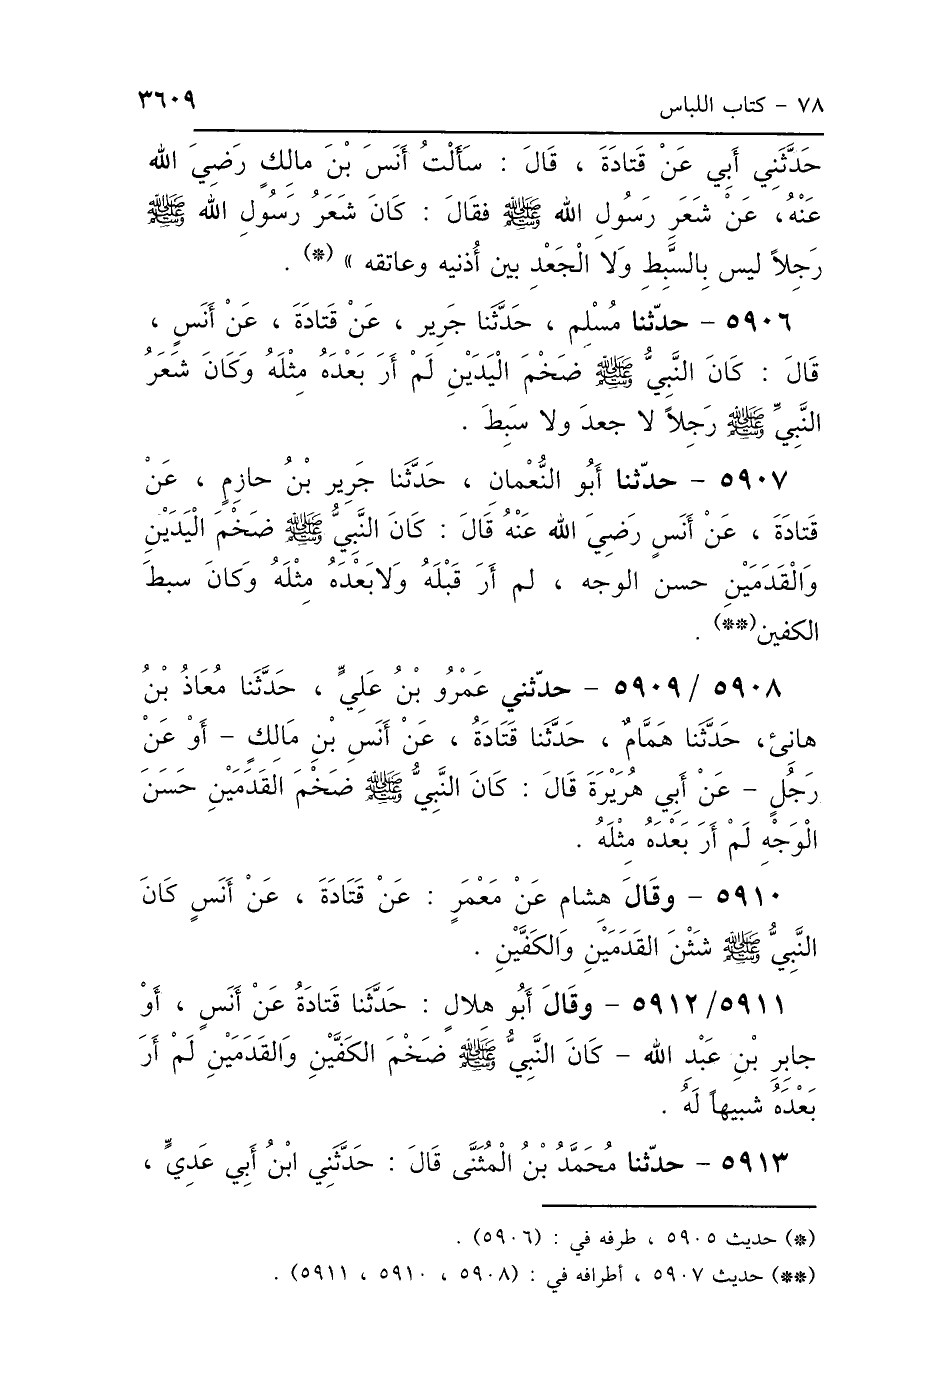 ٧٨ - كتاب اللباس ٣٦٠٩
حَدَّثَنِي أَبِي عَنْ قَتَادَةَ ، قَالَ : سَأَلْتُ أَنَسَ بْنَ مالكٍ رَضِيَ الله
عَنْهُ، عَنْ شَعَرِ رَسُولِ الله ﷺ فقَالَ : كَانَ شَعَرُ رَسُولِ الله ﷺ
رَجِلاً ليس بِالسَّبِطِ وَلَا الْجَعْدِ بين أُذنيه وعاتقه » (*) .
٥٩٠٦ - حدّثنا مُسْلِم ، حَدَّثَنا جَرِير ، عَنْ قَتَادَةَ ، عَنْ أَنَسٍ ،
قَالَ : كَانَ النَّبِيُّ ﷺ ضَخْمَ الْيَدَيْنِ لَمْ أَرَ بَعْدَهُ مِثْلَهُ وَكَانَ شَعَرُ
النَّبِيِّ ﷺ رَجِلاً لا جعدَ ولا سَبِطَ .
٥٩٠٧ - حدّثنا أَبُو النُّعْمانِ ، حَدَّثَنا جَرِير بْنُ حازِمٍ ، عَنْ
قَتَادَةَ ، عَنْ أَنَسٍ رَضِيَ الله عَنْهُ قَالَ : كَانَ النَّبِيُّ ﷺ ضَخْمَ الْيَدَيْنِ
وَالْقَدَمَيْنِ حسن الوجه ، لم أَرَ قَبْلَهُ وَلابَعْدَهُ مِثْلَهُ وَكَانَ سبطَ
الكفين(**) .
٥٩٠٨ /٥٩٠٩ - حدّثني عَمْرُو بْنُ عَلِيٍّ ، حَدَّثَنا مُعَاذُ بْنُ
هانِئ، حَدَّثَنا هَمَّامٌ ، حَدَّثَنا قَتَادَةُ ، عَنْ أَنَسِ بْنِ مَالكٍ - أَوْ عَنْ
رَجُلٍ - عَنْ أَبِي هُرَيْرَةَ قَالَ : كَانَ النَّبِيُّ ﷺ ضَخْمَ القَدَمَيْنِ حَسَنَ
الْوَجْهِ لَمْ أَرَ بَعْدَهُ مِثْلَهُ .
٥٩١٠ - وقَالَ هِشام عَنْ مَعْمَرٍ : عَنْ قَتَادَةَ ، عَنْ أَنَسٍ كَانَ
النَّبِيُّ ﷺ شَثْنَ القَدَمَيْنِ وَالكَفَّيْنِ .
٥٩١١/ ٥٩١٢ - وقَالَ أَبُو هِلالٍ : حَدَّثَنا قَتادَةُ عَنْ أَنَسٍ ، أَوْ
جابِرِ بْنِ عَبْدِ الله - كَانَ النَّبِيُّ ﷺ ضَخْمَ الكَفَّيْنِ وَالقَدَمَيْنِ لَمْ أَرَ
بَعْدَهُ شَبِيهاً لَهُ .
٥٩١٣ - حدّثنا مُحَمَّدُ بْنُ الْمُثَنَّى قَالَ : حَدَّثَنِي ابْنُ أَبِي عَدِيٍّ ،
(*) حديث ٥٩٠٥ ، طرفه في : (٥٩٠٦) .
(**) حديث ٥٩٠٧ ، أطرافه في : (٥٩٠٨ ، ٥٩١٠ ، ٥٩١١) .